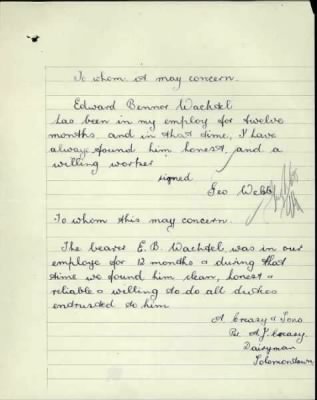 To whom it may concern.
Edward Bennor Wachtel
has been in my employ for twelve
months, and in that time, I have
always found him honest, and a
willing worker
signed
Geo Webb
To whom this may concern.
The bearer E. B. Wachtel was in our
employe for 12 months & during that
time we found him clean, honest &
reliable & willing to do all duties
entrusted to him
A Creasy & Sons
Per A. J. Creasy
Dairyman
Solomontown